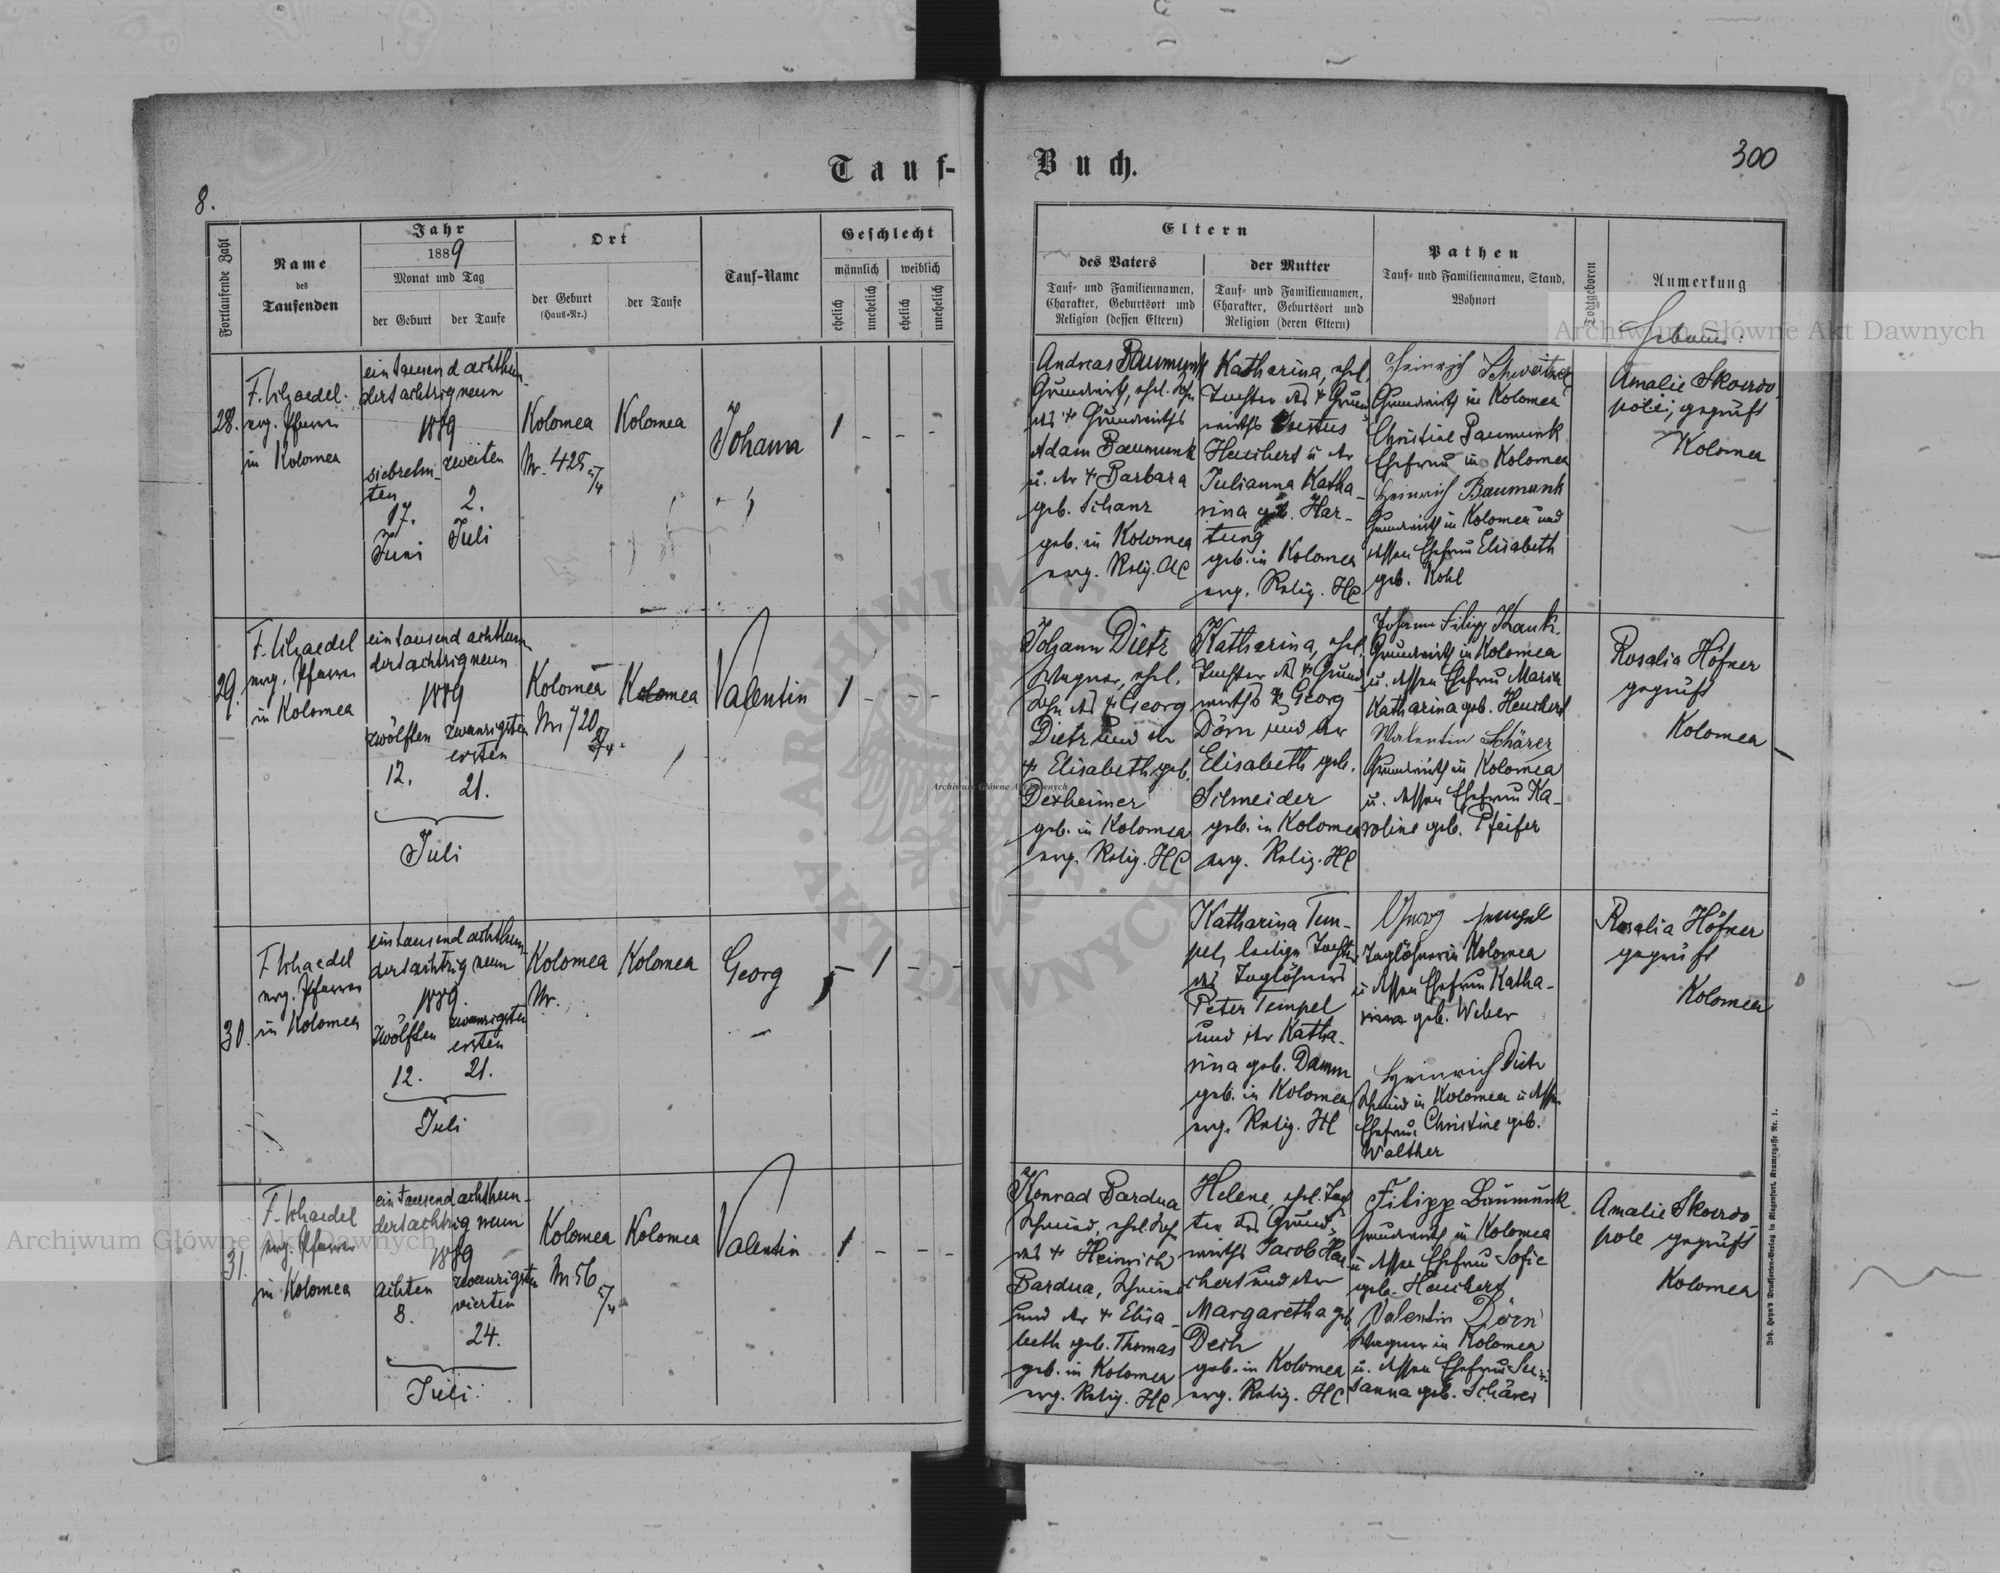 Tauf-
Buch.
8.
300
Fortlaufende Zahl
Name
des
Taufenden
Jahr
1889
Monat und Tag
der Geburt
der Taufe
Ort
der Geburt
(Haus-Nr.)
der Taufe
Tauf-Name
Geschlecht
männlich
weiblich
ehelich
unehelich
ehelich
unehelich
Eltern
des Vaters
Tauf- und Familiennamen,
Charakter, Geburtsort und
Religion (dessen Eltern)
der Mutter
Tauf- und Familiennamen,
Charakter, Geburtsort und
Religion (deren Eltern)
Pathen
Tauf- und Familiennamen, Stand,
Wohnort
Todtgeboren
Anmerkung
28.
evg. Pfarrer
in Kolomea
ein tausend achthun-
dert achtzig neun
1889
siebzehn-
ten
17.
Juni
zweiten
2.
Juli
Kolomea
Nr. 425
Kolomea
Johann
1 - - -
Andreas Baumunk
Grundwirth, ehel. Sohn
des + Grundwirths
Adam Baumunk
u. der + Barbara
geb. Schanz
geb. in Kolomea
evg. Relig. AC
Katharina, ehel.
Tochter des + Grund-
wirths
Heuchert u. der
Julianna Katha-
rina geb. Har-
tung
geb. in Kolomea
evg. Relig. HC
Heinrich Schweitzer
Grundwirth in Kolomea
Christine Baumunk
Ehefrau in Kolomea
Heinrich Baumunk
Grundwirth in Kolomea und
dessen Ehefrau Elisabeth
geb. Kohl
Amalie Skowro-
geprüft
Kolomea
29.
evg. Pfarrer
in Kolomea
ein tausend achthun-
dert achtzig neun
1889
zwölften
12.
zwanzigsten
ersten
21.
Juli
Kolomea
Nr 720
Kolomea
Valentin
1 - - -
Johann Dietz
Wagner, ehel.
Sohn des + Georg
Dietz und der
+ Elisabeth geb.
Dexheimer
geb. in Kolomea
evg. Relig. HC
Katharina, ehel.
Tochter des + Grund-
wirths + Georg
Dörn und der
Elisabeth geb.
Schneider
geb. in Kolomea
evg. Relig. HC
Johann Filipp
Grundwirth in Kolomea
u. dessen Ehefrau Maria
Katharina geb. Heuchert
Valentin Schärer
Grundwirth in Kolomea
u. dessen Ehefrau Ka-
roline geb. Pfeifer
Rosalia Höfner
geprüft
Kolomea
30.
evg. Pfarrer
in Kolomea
ein tausend achthun-
dert achtzig neun
1889.
zwölften
12.
zwanzigsten
ersten
21.
Juli
Kolomea
Nr.
Kolomea
Georg
- 1 - -
Katharina Tem-
pel, ledige Tochter
des Taglöhners
Peter Tempel
und der Katha-
rina geb. Damm
geb. in Kolomea
evg. Relig. HC
Georg Tempel
Taglöhner in Kolomea
u. dessen Ehefrau Katha-
rina geb. Weber
Heinrich Dietz
Schmied in Kolomea u. dessen
Ehefrau Christine geb.
Walther
Rosalia Höfner
geprüft
Kolomea
31.
evg. Pfarrer
in Kolomea
ein tausend achthun-
dert achtzig neun
1889
achten
8.
zwanzigsten
vierten
24.
Juli
Kolomea
Nr 56
Kolomea
Valentin
1 - - -
Konrad Bardua
Schmied, ehel. Sohn
des + Heinrich
Bardua, Schmied
und der + Elisa-
beth geb. Thomas
geb. in Kolomea
evg. Relig. HC
Helene, ehel. Toch-
ter des Grund-
wirths Jacob Heu-
chert und der
Margaretha geb.
geb. in Kolomea
evg. Relig. HC
Filipp Baumunk
Grundwirth in Kolomea
u. dessen Ehefrau Sofie
geb. Heuchert
Valentin Dörn
Wagner in Kolomea
u. dessen Ehefrau Su-
sanna geb. Schärer
Amalie Skowro-
pole geprüft
Kolomea
Archiwum Główne Akt Dawnych
Archiwum Główne Akt Dawnych
Archiwum Główne Akt Dawnych